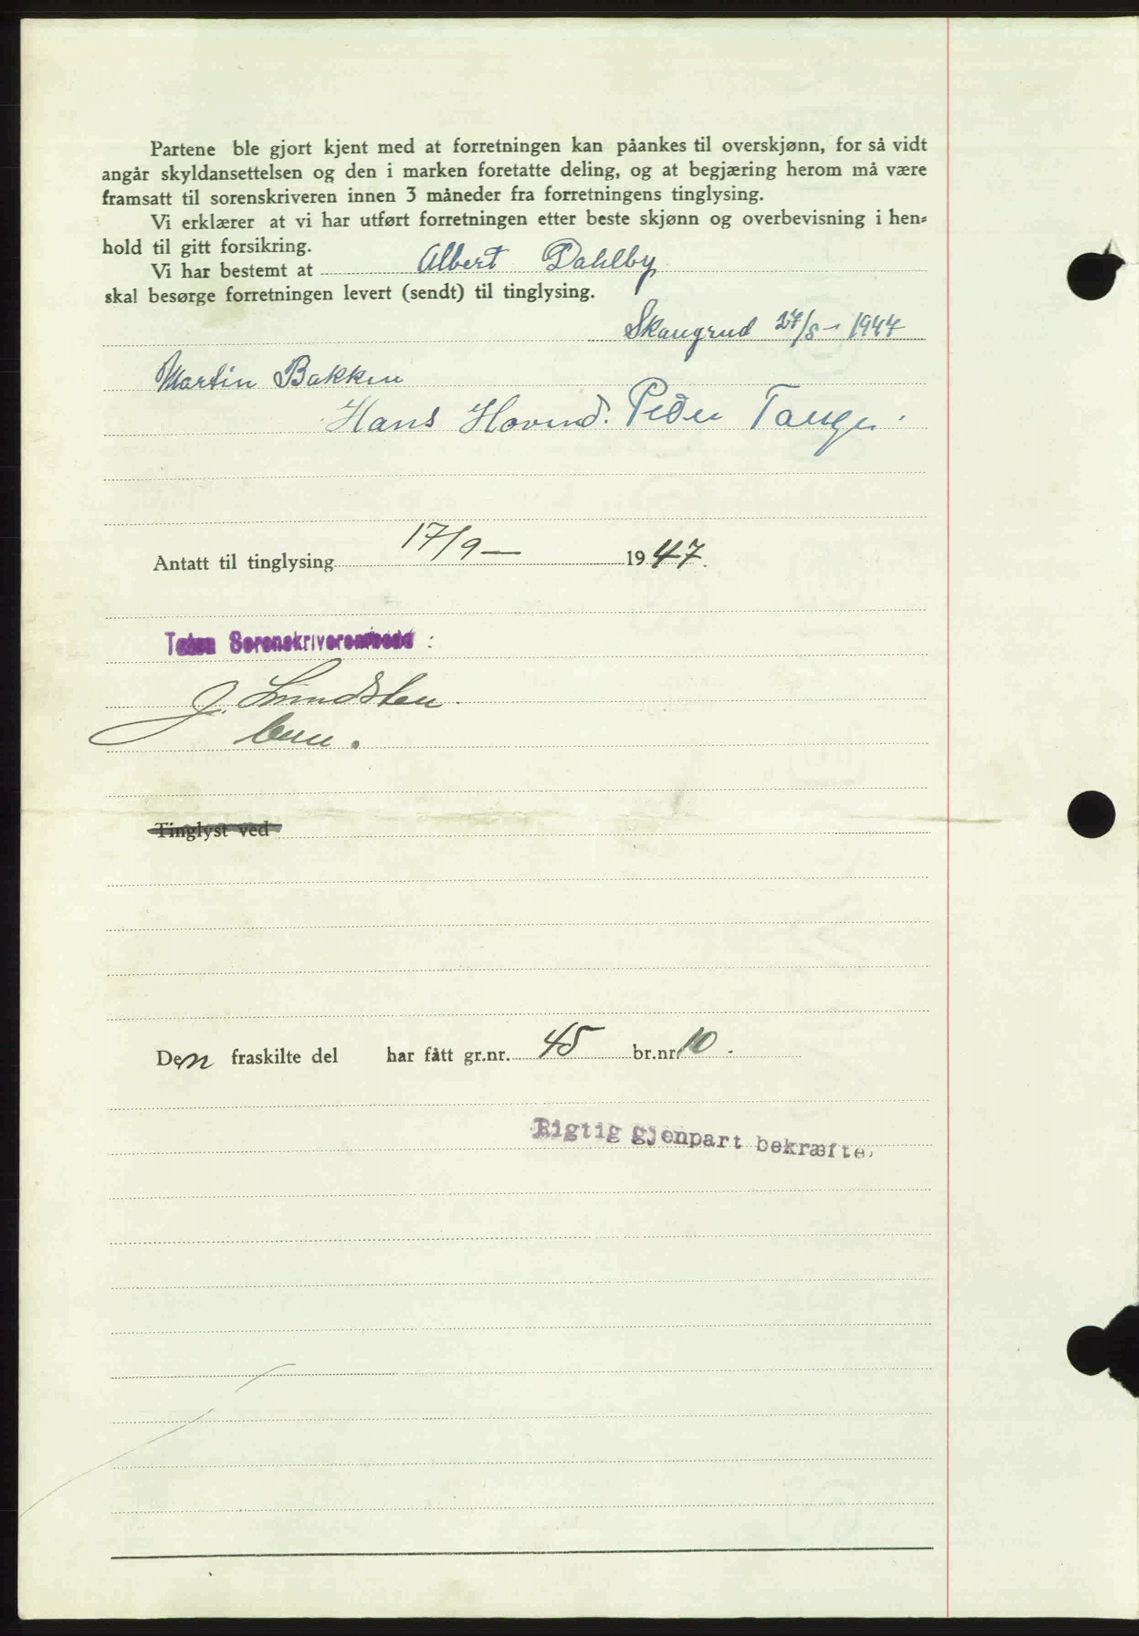 Partene ble gjort kjent med at forretningen kan påankes til overskjønn, for så vidt
angår skyldansettelsen og den i marken foretatte deling, og at begjæring herom må være
framsatt til sorenskriveren innen 3 måneder fra forretningens tinglysing.
Vi erklærer at vi har utført forretningen etter beste skjønn og overbevisning i hen=
hold til gitt forsikring.
Vi har bestemt at Albert Dahlby
skal besørge forretningen levert (sendt) til tinglysing.
Skaugrud 27/8 - 1947
Martin Bakken
Hans Hovind. Peder Tange.
Antatt til tinglysing 17/9 — 1947.
Toten Sorenskriverembede :
J. Lundsten
Tinglyst ved
Den fraskilte del har fått gr.nr. 45 br.nr. 10.
Rigtig gjenpart bekræftes